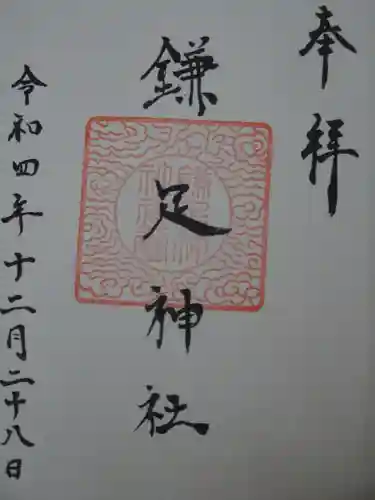 奉拝
鎌足神社
令和四年十二月二十八日